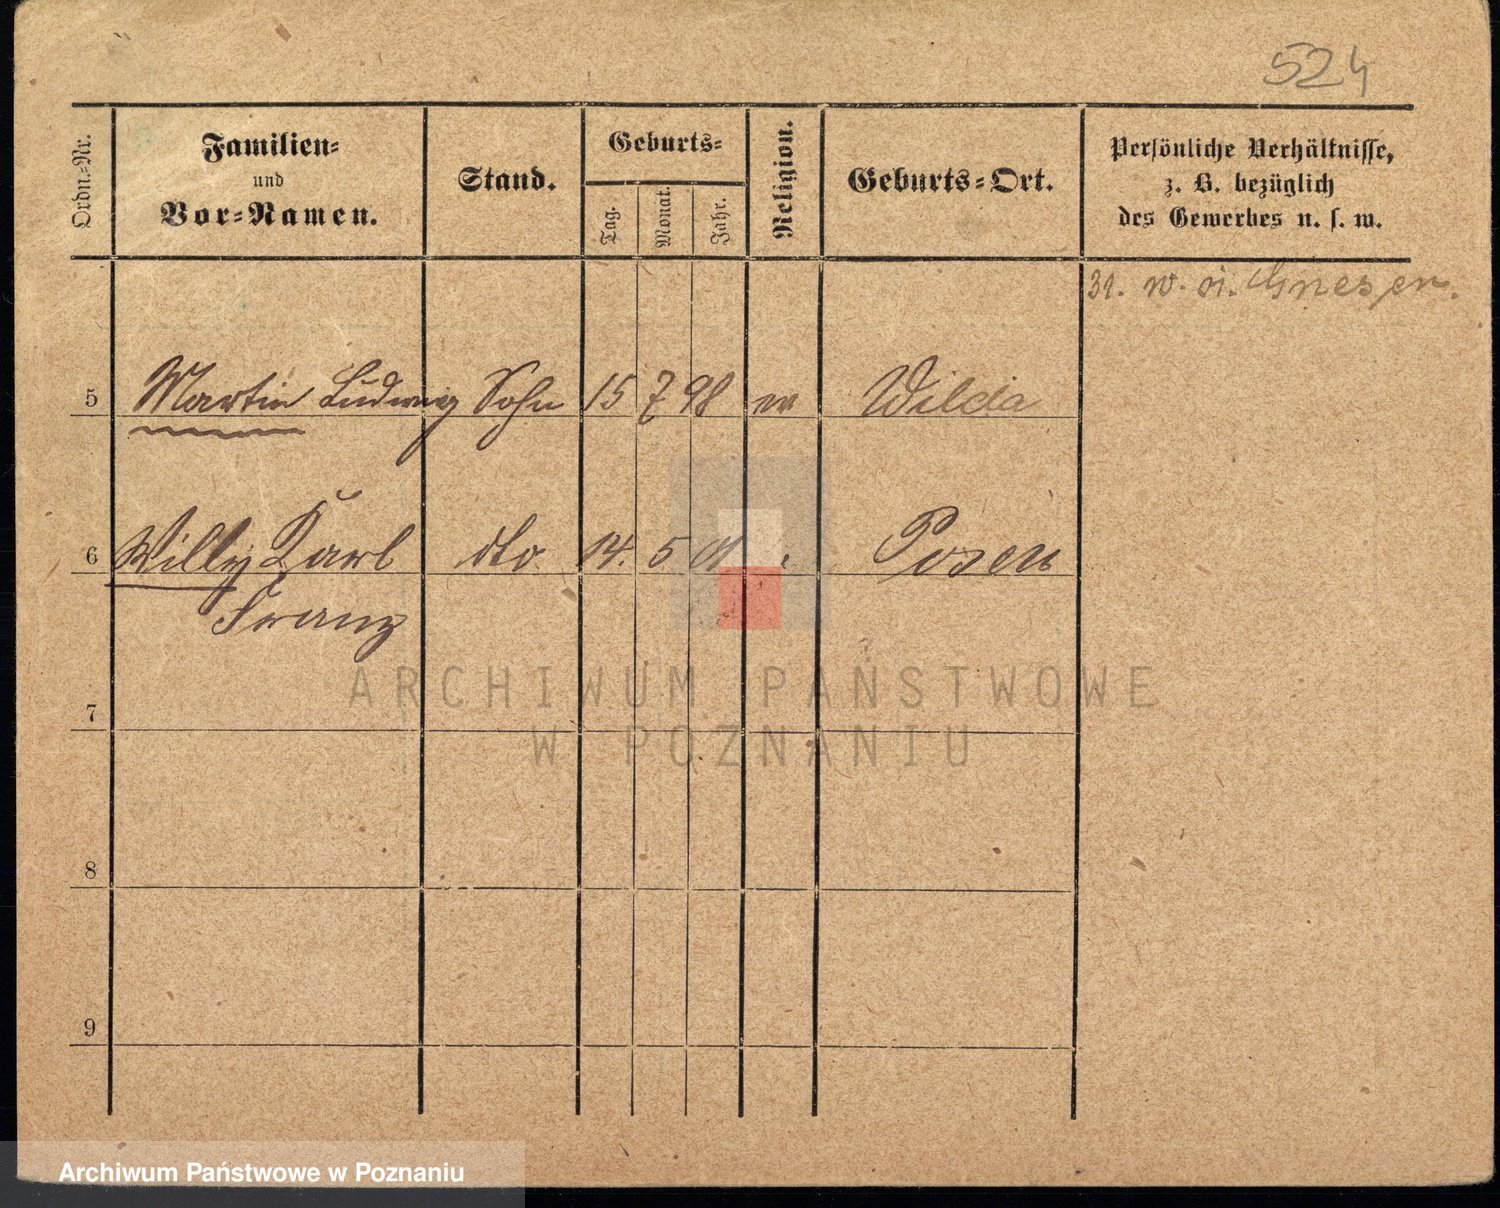 524
Ordn.-Nr.
Familien-
und
Vor-Namen.
Stand.
Geburts-
Tag.
Monat.
Jahr.
Religion.
Geburts-Ort.
Persönliche Verhältnisse,
z. B. bezüglich
des Gewerbes u. s. w.
31. Gnesen.
5 Martin Ludwig Sohn 15 7 98 ev Wilda
6 Willy Karl dto 14. 5 01 Posen
Franz
7
8
9
ARCHIWUM PAŃSTWOWE
W POZNANIU
Archiwum Państwowe w Poznaniu